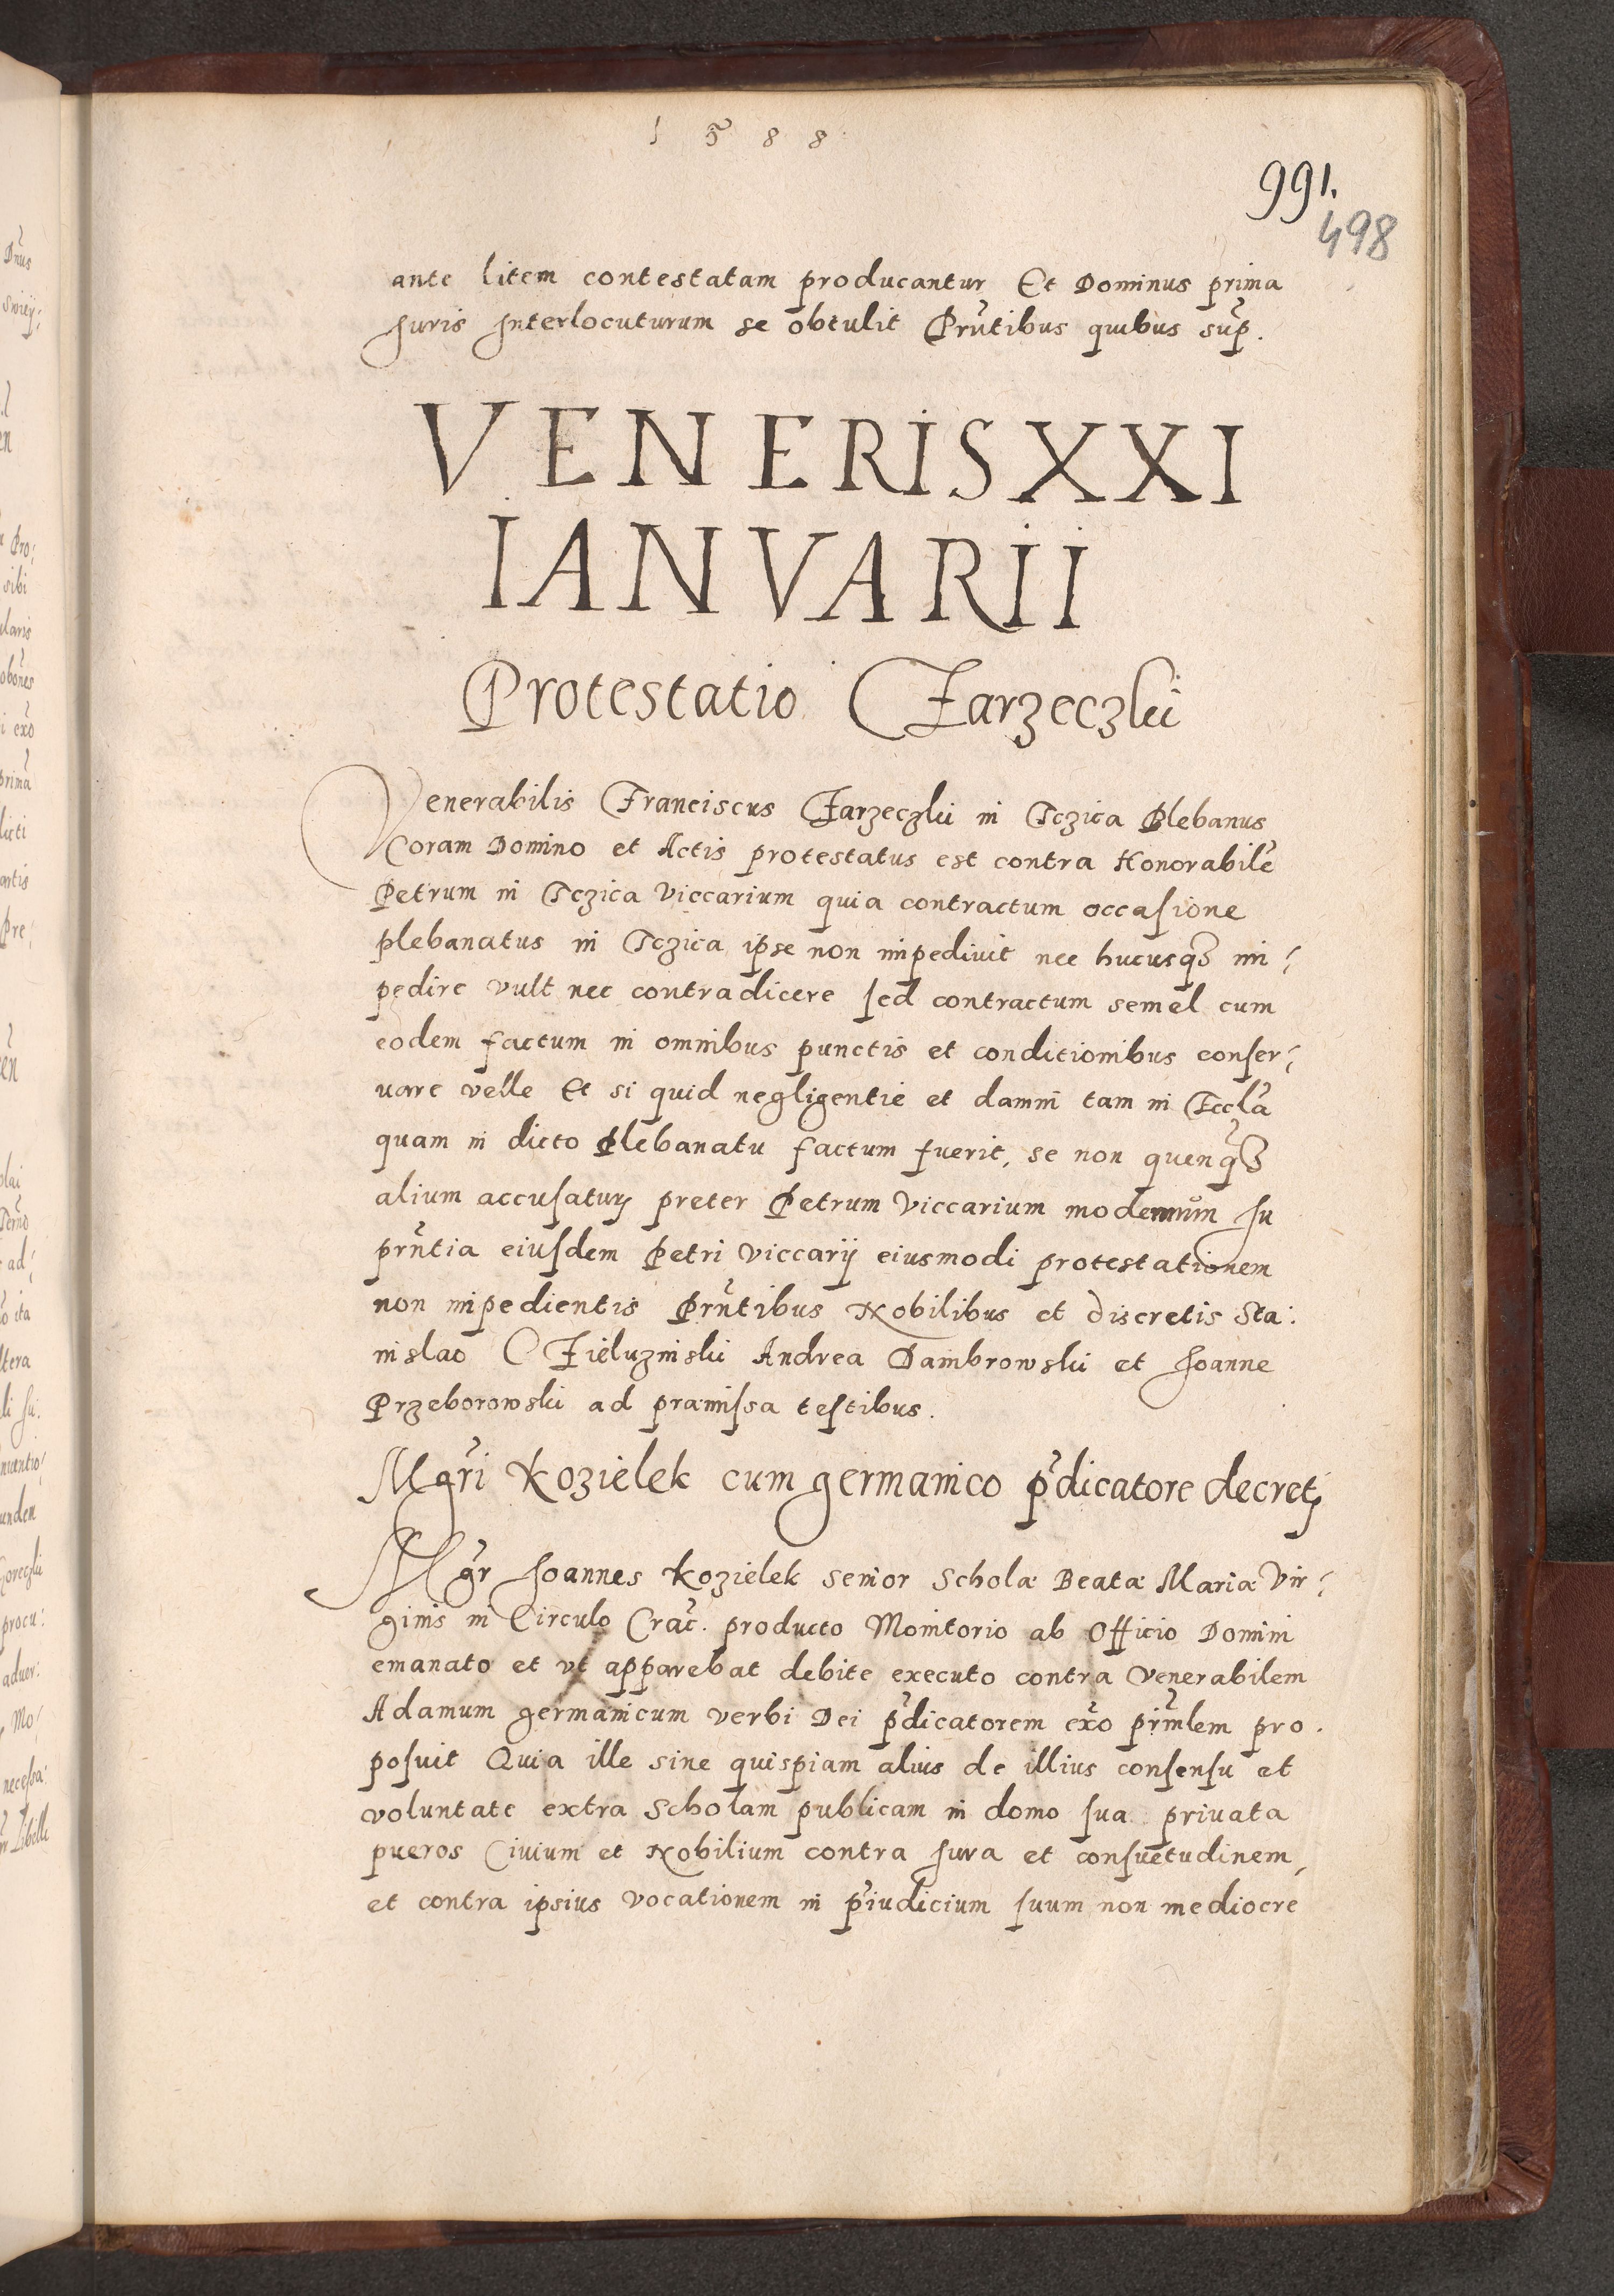 1588
991.
498
ante litem contestatam producantur Et Dominus prima
Juris Interlocuturum se obtulit Prñtibus quibus sup̃.
VENERIS XXI
IANVARII
Protestatio Zarzeczki
Venerabilis Franciscus Zarzeczki in Tczica Plebanus
Coram Domino et Actis protestatus est contra Honorabilẽ
Petrum in Tczica Viccarium quia contractum occasione
plebanatus in Tczica ipse non impedivit nec hucusqꝫ im:
pedire vult nec contradicere sed contractum semel cum
eodem factum in omnibus punctis et conditionibus conser:
uare velle Et si quid negligentie et damni tam in Eccľa
quam in dicto Plebanatu factum fuerit, se non quenqꝫ
alium accusatuꝝ preter Petrum Viccarium modernum In
prñtia eiusdem Petri Viccarij eiusmodi protestationem
non impedientis Prñtibus Nobilibus et discretis Sta:
nislao Zieluzinski Andrea Dambrowski et Joanne
Przeborowski ad præmissa testibus.
Mgr̃i Kozielek cum germanico p̃dicatore decretꝫ
Mgr̃ Joannes Kozielek senior Scholæ Beatæ Mariæ Vir:
ginis in Circulo Crac̃. producto Monitorio ab Officio Domini
emanato et vt apparebat debite executo contra Venerabilem
Adamum germanicum verbi Dei p̃dicatorem ex̃o prim̃lem pro.
posuit Quia ille sine quispiam alius de illius consensu et
voluntate extra Scholam publicam in domo sua priuata
pueros Ciuium et Nobilium contra Jura et consuetudinem,
et contra ipsius vocationem in p̃iudicium suum non mediocre